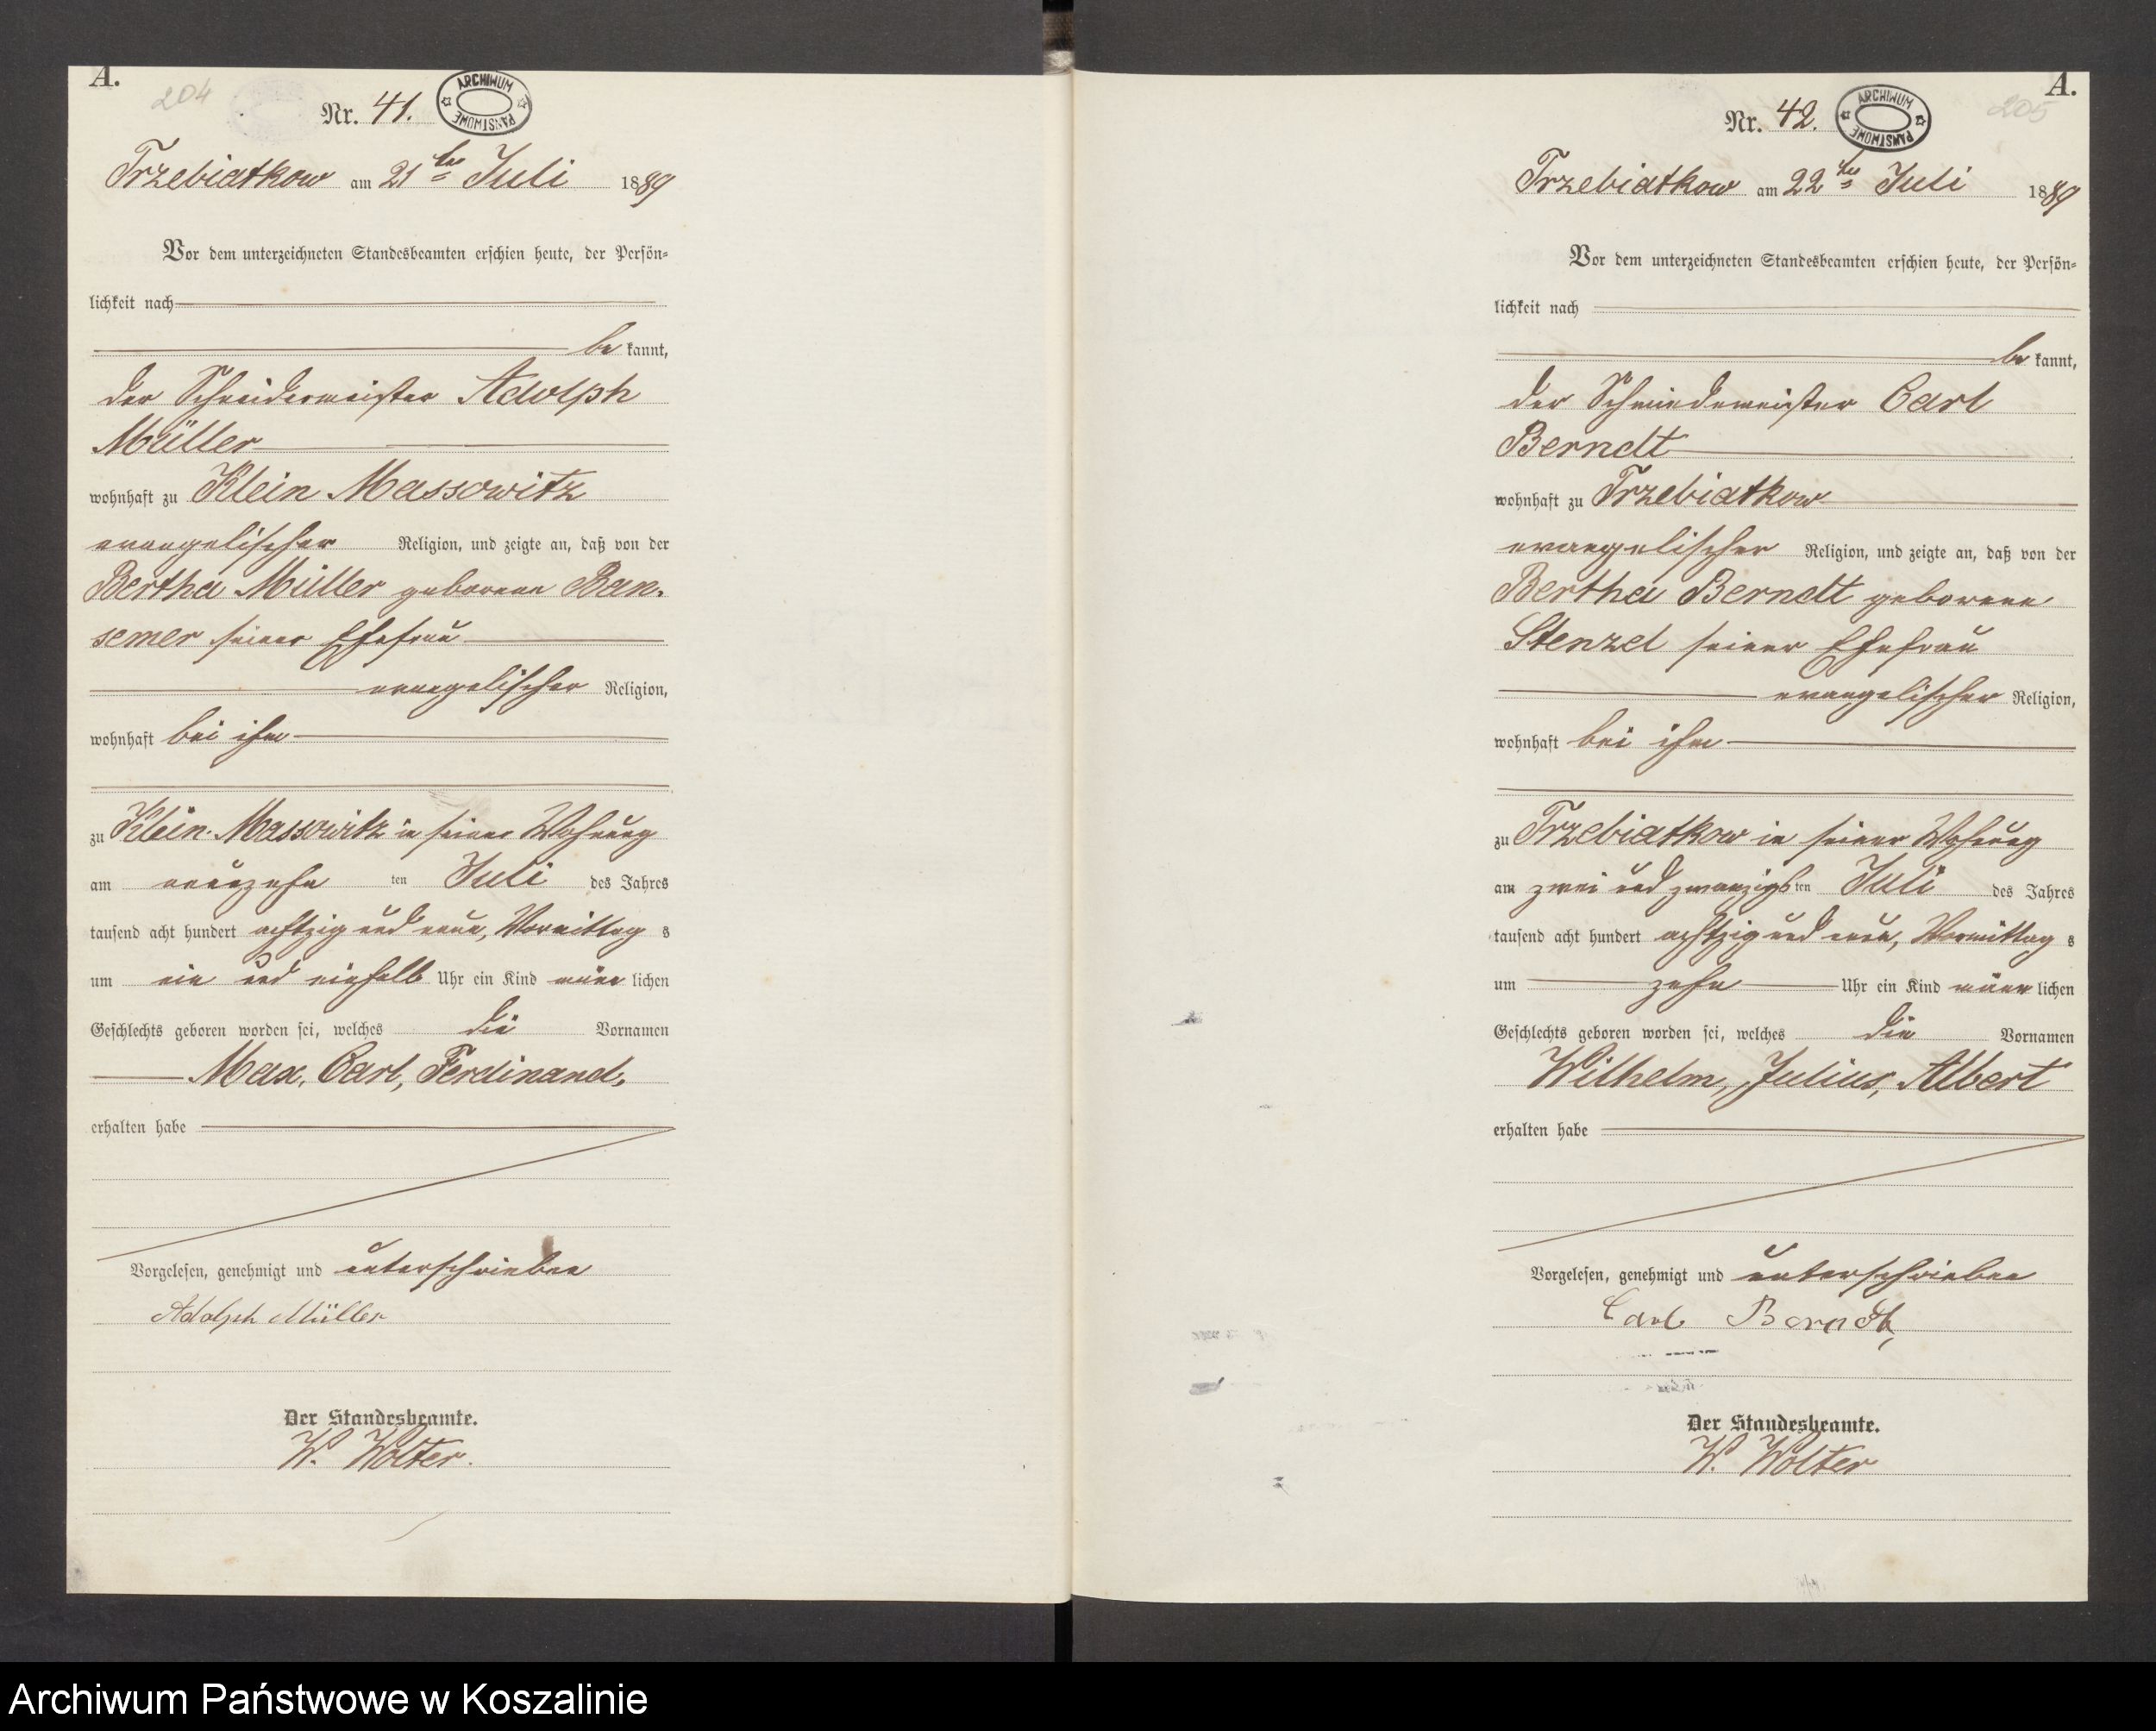 A.
204
Nr. 41.
ARCHIWUM PAŃSTWOWE
Trzebiatkow am 21ten Juli 1889
Vor dem unterzeichneten Standesbeamten erschien heute, der Persön-
lichkeit nach
be kannt,
der Schneidermeister Adolph
Müller
wohnhaft zu Klein Massowitz
evangelischer Religion, und zeigte an, daß von der
Bertha Müller geborene Ban-
semer seiner Ehefrau
evangelischer Religion,
wohnhaft bei ihm
zu Klein-Massowitz in seiner Wohnung
am neunzehn ten Juli des Jahres
tausend acht hundert achtzig und neun, Vormittag s
um ein und einhalb Uhr ein Kind männ lichen
Geschlechts geboren worden sei, welches die Vornamen
Max, Carl, Ferdinand,
erhalten habe
Vorgelesen, genehmigt und unterschrieben
Adolph Müller
Der Standesbeamte.
W. Wolter.
A.
205
Nr. 42.
ARCHIWUM PAŃSTWOWE
Trzebiatkow am 22ten Juli 1889
Vor dem unterzeichneten Standesbeamten erschien heute, der Persön-
lichkeit nach
be kannt,
der Schmiedemeister Carl
Berndt
wohnhaft zu Trzebiatkow
evangelischer Religion, und zeigte an, daß von der
Bertha Berndt geborene
Stenzel seiner Ehefrau
evangelischer Religion,
wohnhaft bei ihm
zu Trzebiatkow in seiner Wohnung
am zwei und zwanzigs ten Juli des Jahres
tausend acht hundert achtzig und neun, Vormittag s
um zehn Uhr ein Kind männ lichen
Geschlechts geboren worden sei, welches die Vornamen
Wilhelm, Julius, Albert
erhalten habe
Vorgelesen, genehmigt und unterschrieben
Carl Berndt,
Der Standesbeamte.
W. Wolter
Archiwum Państwowe w Koszalinie